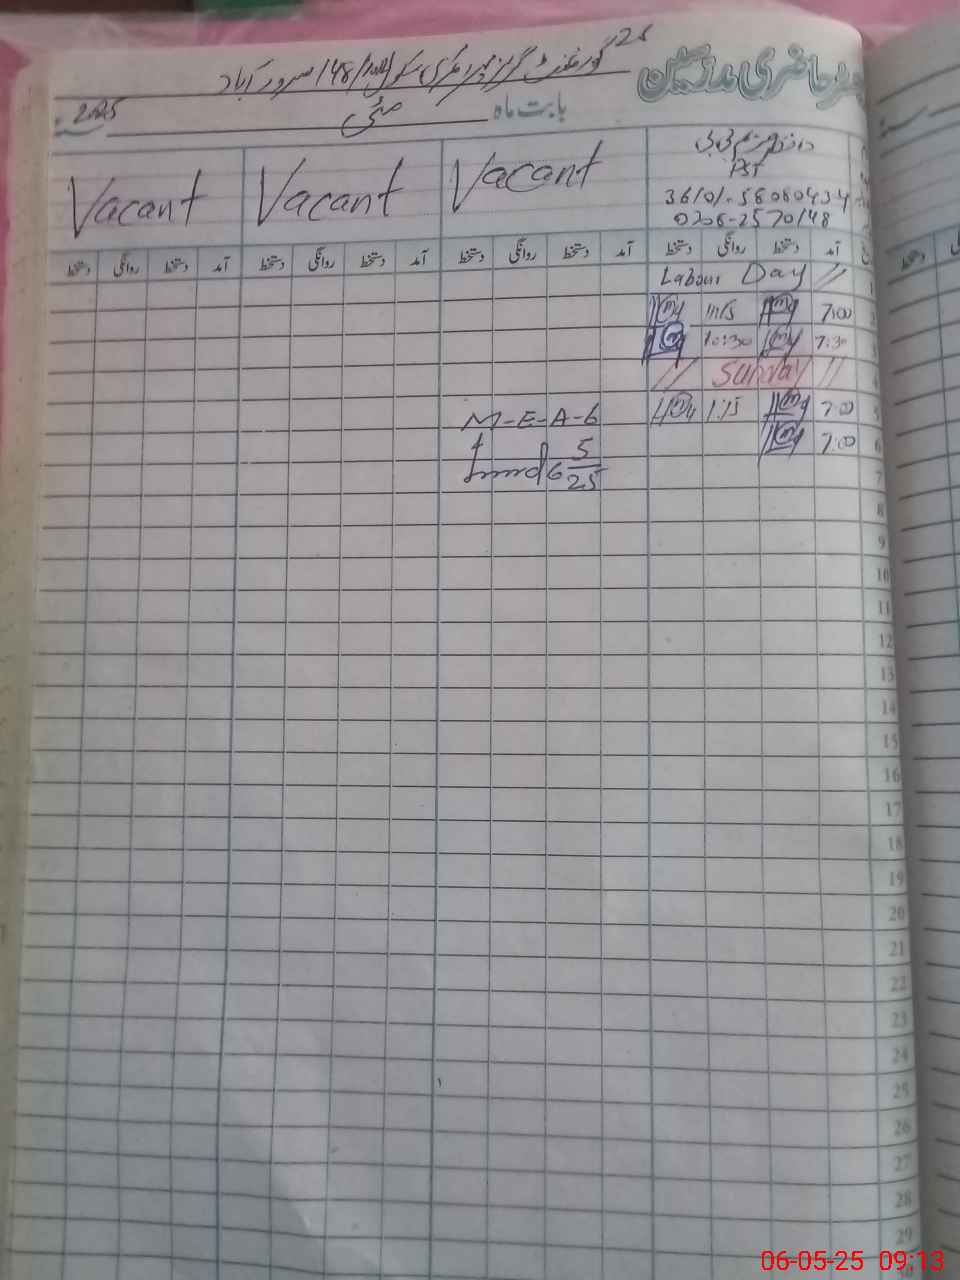 رجسٹر حاضری مدرسین
گورنمنٹ گرلز پرائمری سکول 148/10R سرور آباد
بابت ماہ مئی 2025
PST
Vacant Vacant Vacant
0306-2570148
آمد دستخط روانگی دستخط آمد دستخط روانگی دستخط آمد دستخط روانگی دستخط آمد دستخط روانگی دستخط
1 Labour Day //
2 7:00 11:15
3 7:30 10:30
4 // Sunday //
5 7:00 1:15
M-E-A-6
6 7:00
6 5/25
7
8
9
10
11
12
13
14
15
16
17
18
19
20
21
22
23
24
25
26
27
28
29
06-05-25 09:13